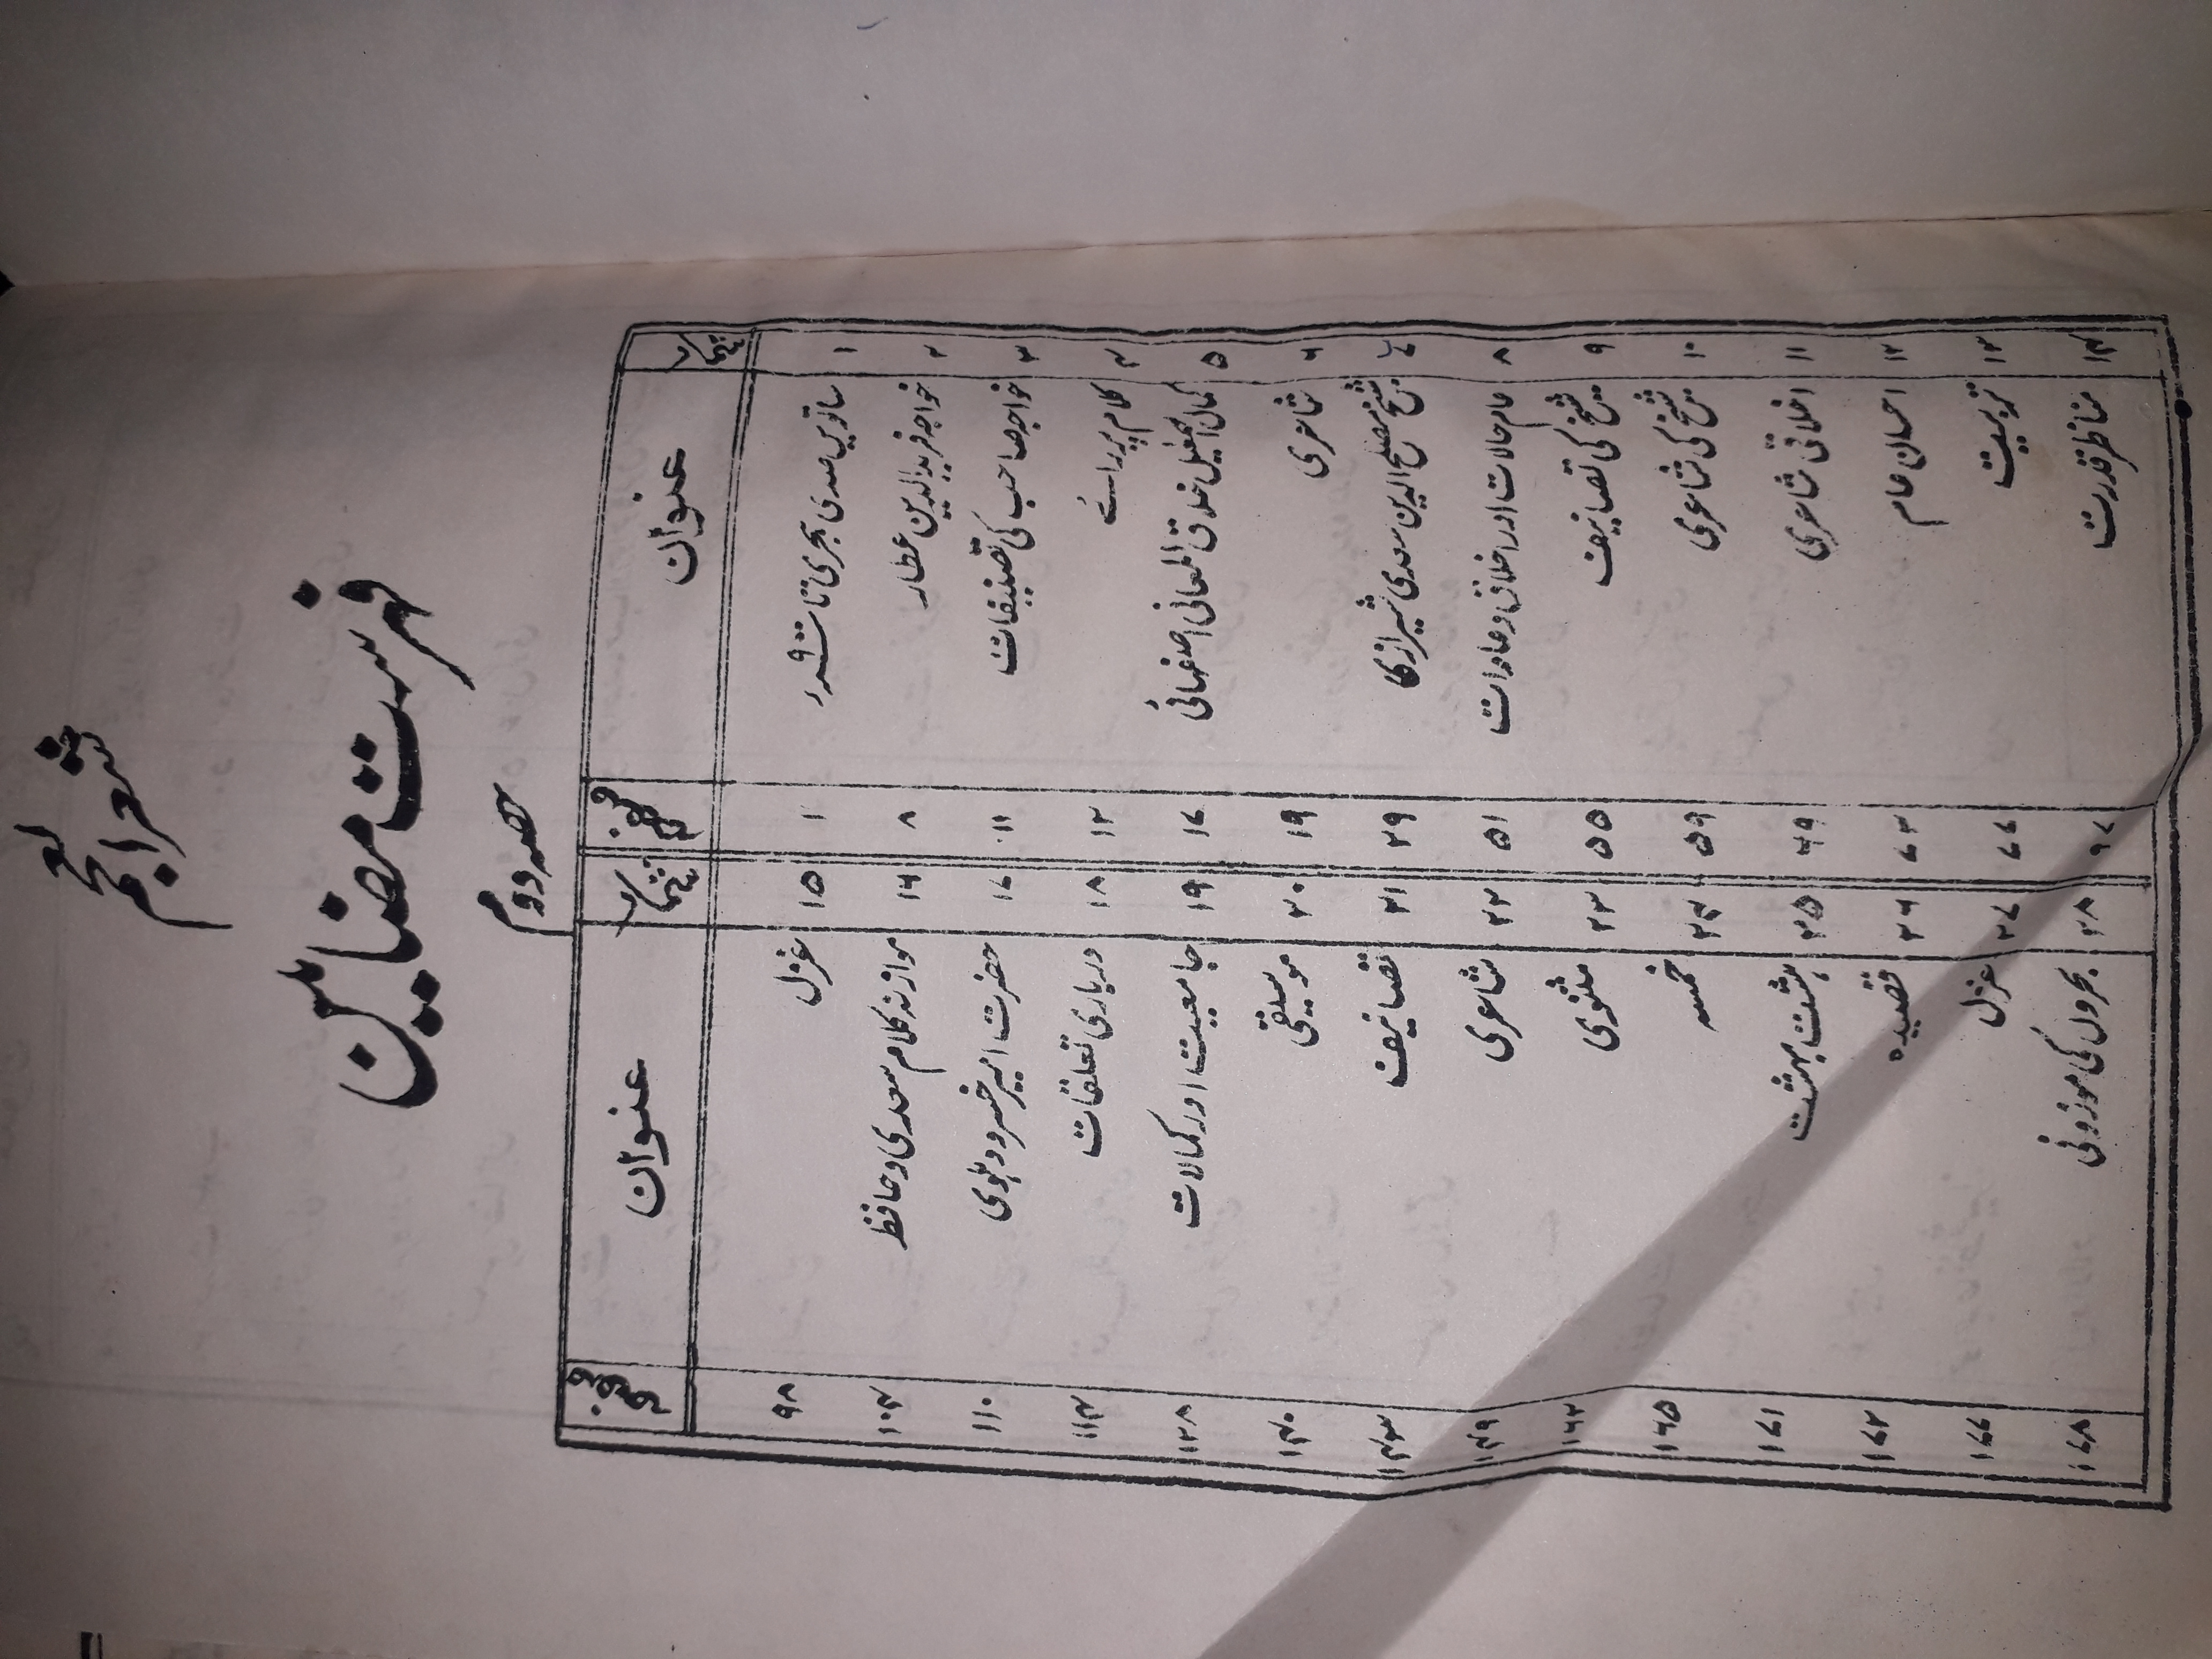 شعرالعجم
فہرست مضامین
حصہ دوم
نمبر شمار عنوان صفحہ نمبر شمار عنوان صفحہ
۱ ساتویں صدی ہجری تا ۱ ۱۵ غزل ۹۸
۲ خواجہ فریدالدین عطار ۸ ۱۶ موازنہ کلام سعدی و حافظ ۱۰۴
۳ خواجہ صاحب کی تصنیفات ۱۱ ۱۷ حضرت امیر خسرو دہلوی ۱۱۰
۴ کلام پر رائے ۱۲ ۱۸ درباری تعلقات ۱۱۴
۵ کمال اسمٰعیل خلاق المعانی اصفہانی ۱۷ ۱۹ جامعیت اور کمالات ۱۳۸
۶ شاعری ۱۹ ۲۰ موسیقی ۱۴۰
۷ شیخ مصلح الدین سعدی شیرازی ۲۹ ۲۱ تصانیف ۱۴۳
۸ عام حالات اور اخلاق و عادات ۵۱ ۲۲ شاعری ۱۴۹
۹ شیخ کی تصانیف ۵۵ ۲۳ مثنوی ۱۶۲
۱۰ شیخ کی شاعری ۵۹ ۲۴ خمسہ ۱۶۵
۱۱ اخلاقی شاعری ۶۹ ۲۵ ہشت بہشت ۱۷۱
۱۲ احسان عام ۷۳ ۲۶ قصیدہ ۱۷۲
۱۳ تربیت ۷۷ ۲۷ غزل ۱۷۷
۱۴ مناظر قدرت ۹۷ ۲۸ بحروں کی موزونی ۱۷۸